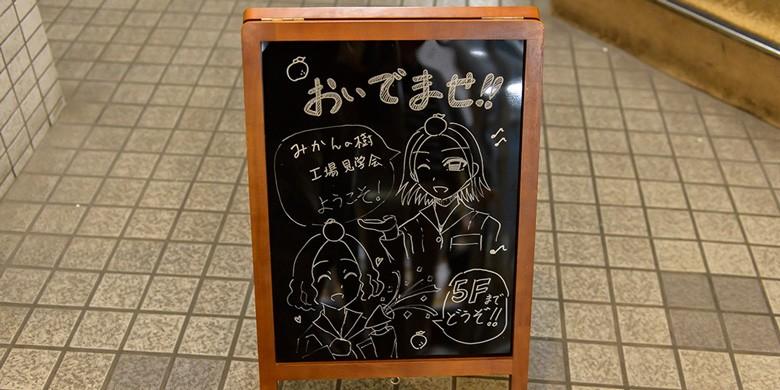 おいでませ!!
みかんの樹
工場見学会
ようこそ!
5Fまで
どうぞ!!